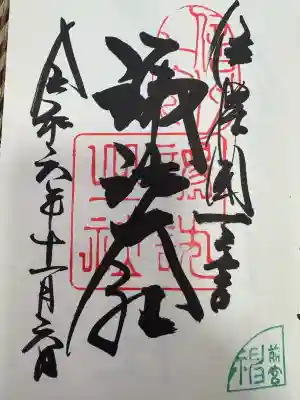 信濃國一之宮
諏訪大社
令和六年十一月六日
前宮